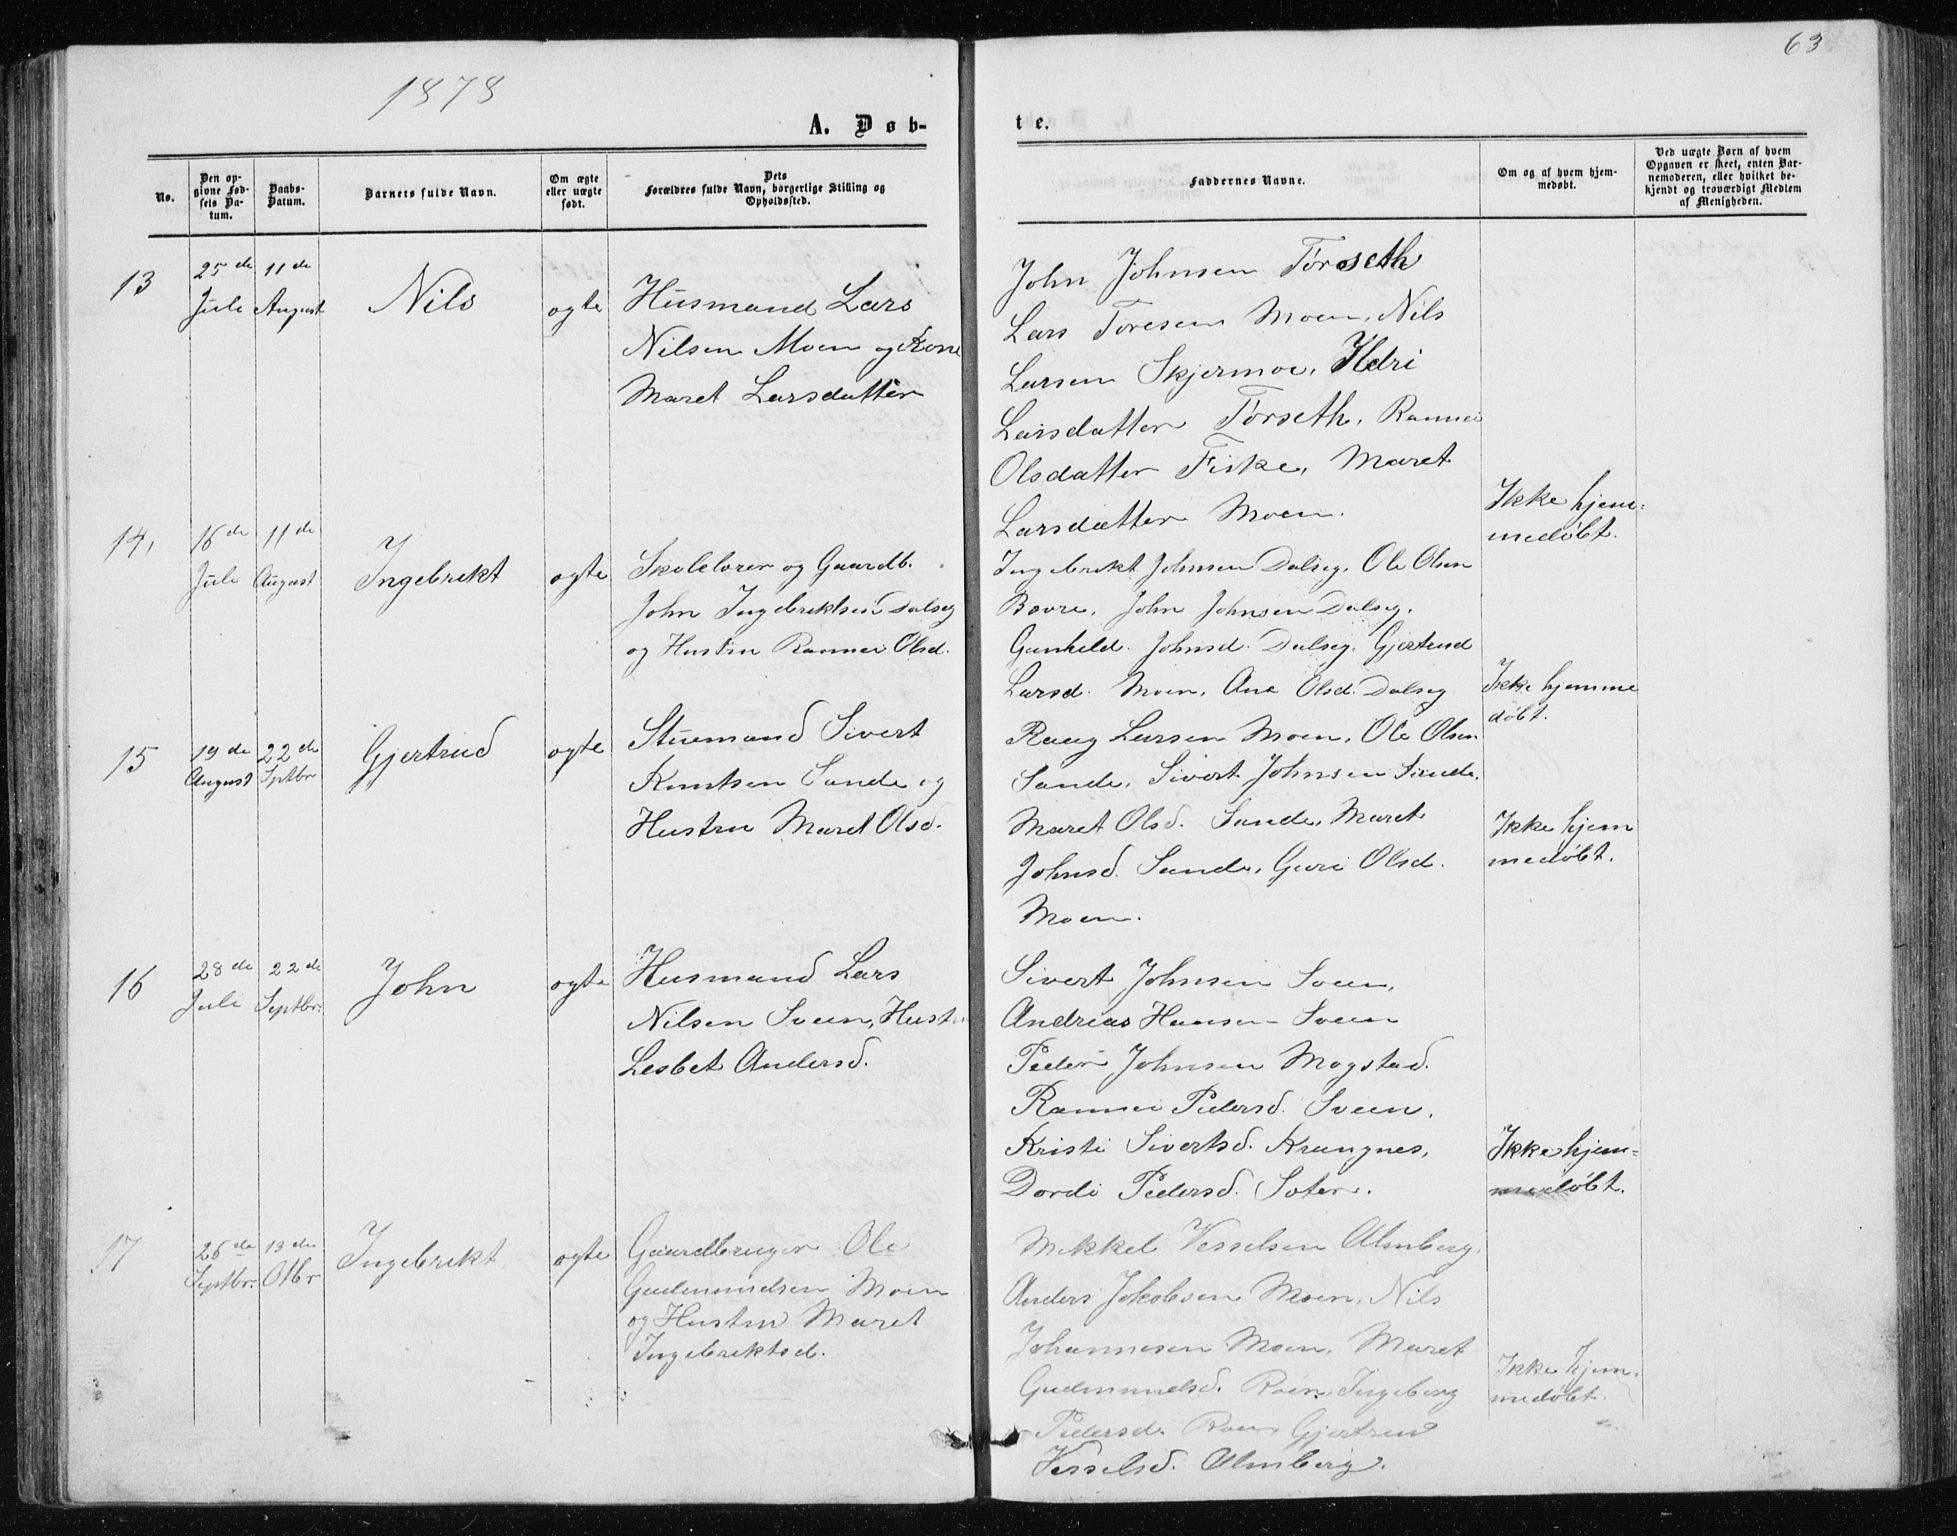 1878
63
A. Døb-
te.
No.
Den op-
givne Fød-
sels Da-
tum.
Daabs-
Datum.
Barnets fulde Navn.
Om ægte
eller uægte
født.
Dets
Forældres fulde Navn, borgerlige Stilling og
Opholdssted.
Faddernes Navne.
Om og af hvem hjem-
medøbt.
Ved uægte Børn af hvem
Opgaven er skeet, enten Bar-
nemoderen, eller hvilket be-
kjendt og troværdigt Medlem
af Menigheden.
13
25de
Juli
11de
August
Nils
ogte
Husmand Lars
Nilsen Moen og Kone
Maret Larsdatter
John Johnsen Torseth
Lars Toresen Moen, Nils
Larsen Skjermoe, Ildri
Larsdatter Torseth, Rannei
Olsdatter Fiske, Maret
Larsdatter Moen.
Ikke hjem=
medøbt.
14,
16de
Juli
11de
August
Ingebrikt
ogte
Skolelorer og Gaardb.
John Ingebriktsen Dalseg
og Hustru Rannei Olsd.
Ingebrikt Johnsen Dalseg, Ole Olsen
Bovre, John Johnsen Dalseg,
Gunhild Johnsd. Dalseg, Gjertrud
Larsd. Moen, Ane Olsd. Dalseg
Ikke hjemme
døbt.
15
19de
August
22de
Sptbr
Gjertrud
ogte
Stuemand Sivert
Knutsen Sande og
Hustru Maret Olsd.
Lursen Moen, Ole Olsen
Sande, Sivert Johnsen Sande,
Maret Olsd. Sande, Maret
Johnsd. Sande, Guri Olsd.
Moen.
Ikke hjem
medøbt.
16
28de
Juli
22de
Septbr.
John
ogte
Husmand Lars
Nilsen Sveen, Hustru
Lesbet Andersd.
Sivert Johnsen Sveen,
Andreas Hansen Sveen
Peder Johnsen Mogstad.
Rannei Pedersd. Sveen,
Kristi Sivertsd. Krangnes,
Dordi Pedersd. Soter.
Ikke hjem=
medøbt.
17
26de
Septbr.
13de
Otbr
Ingebrikt
ogte
Gaardbruger Ole
Gudmundsen Moen
og Hustru Maret
Ingebriktsd.
Mikkel Vesselsen Almberg,
Anders Jakobsen Moen, Nils
Johannesen Moen, Maret
Gudmundsd. Roen, Ingeborg
Pedersd. Roen Gjertrud
Vesselsd. Almberg.
Ikke hjem=
medøbt.